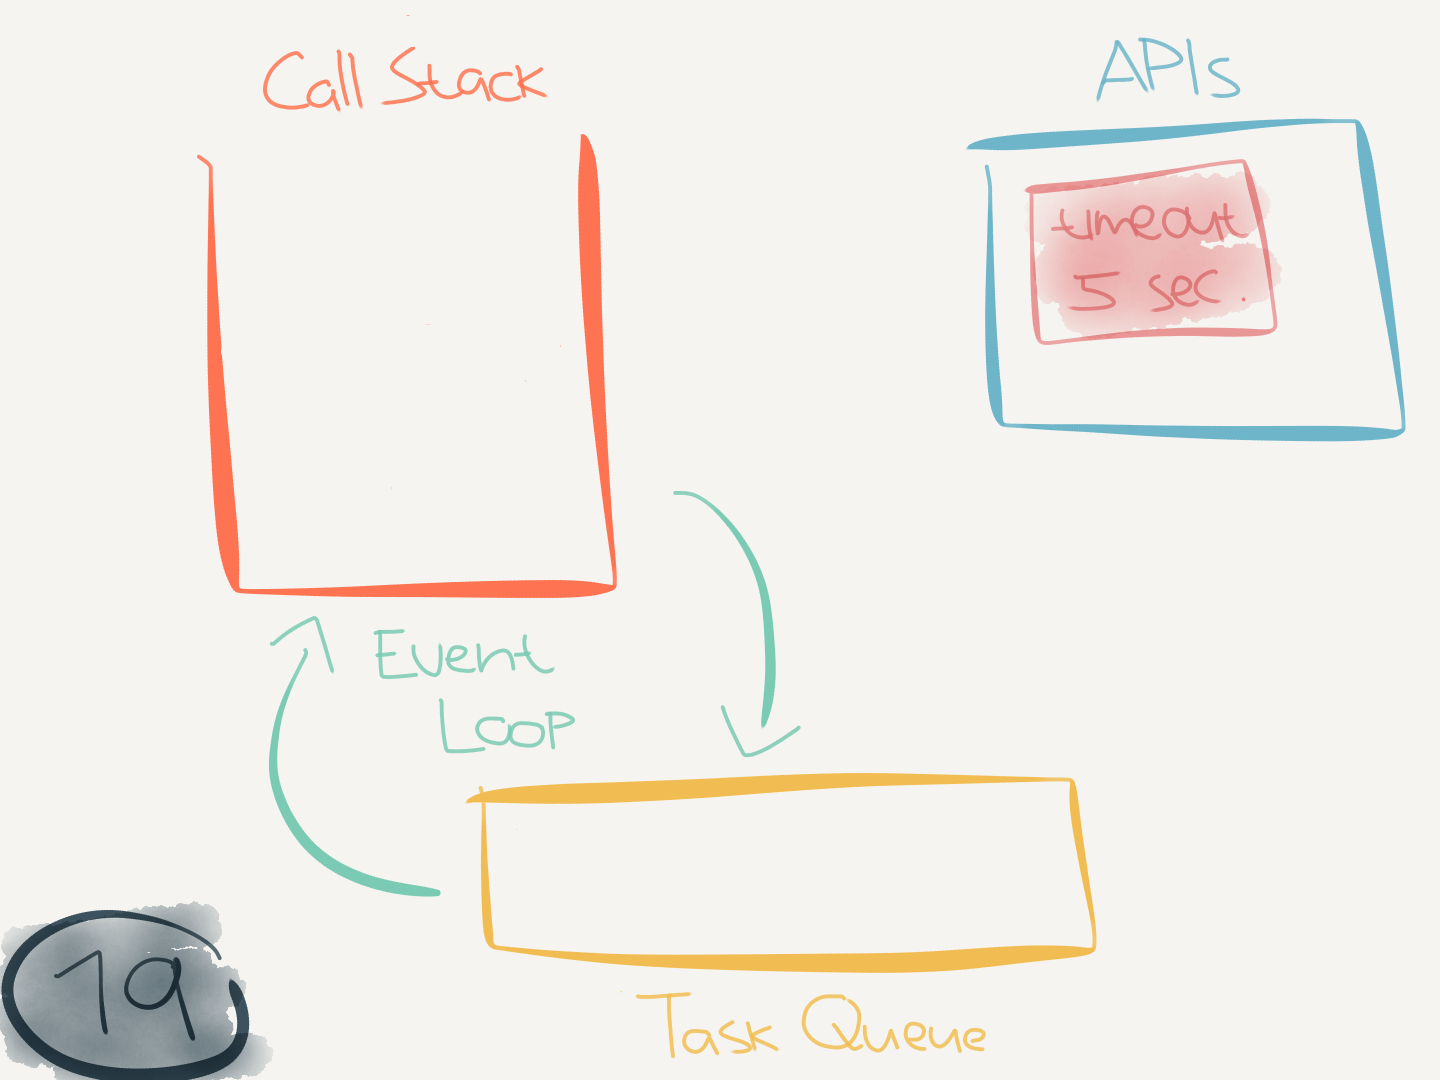 Call Stack
APIs
timeout
5 sec.
Event
Loop
Task Queue
19